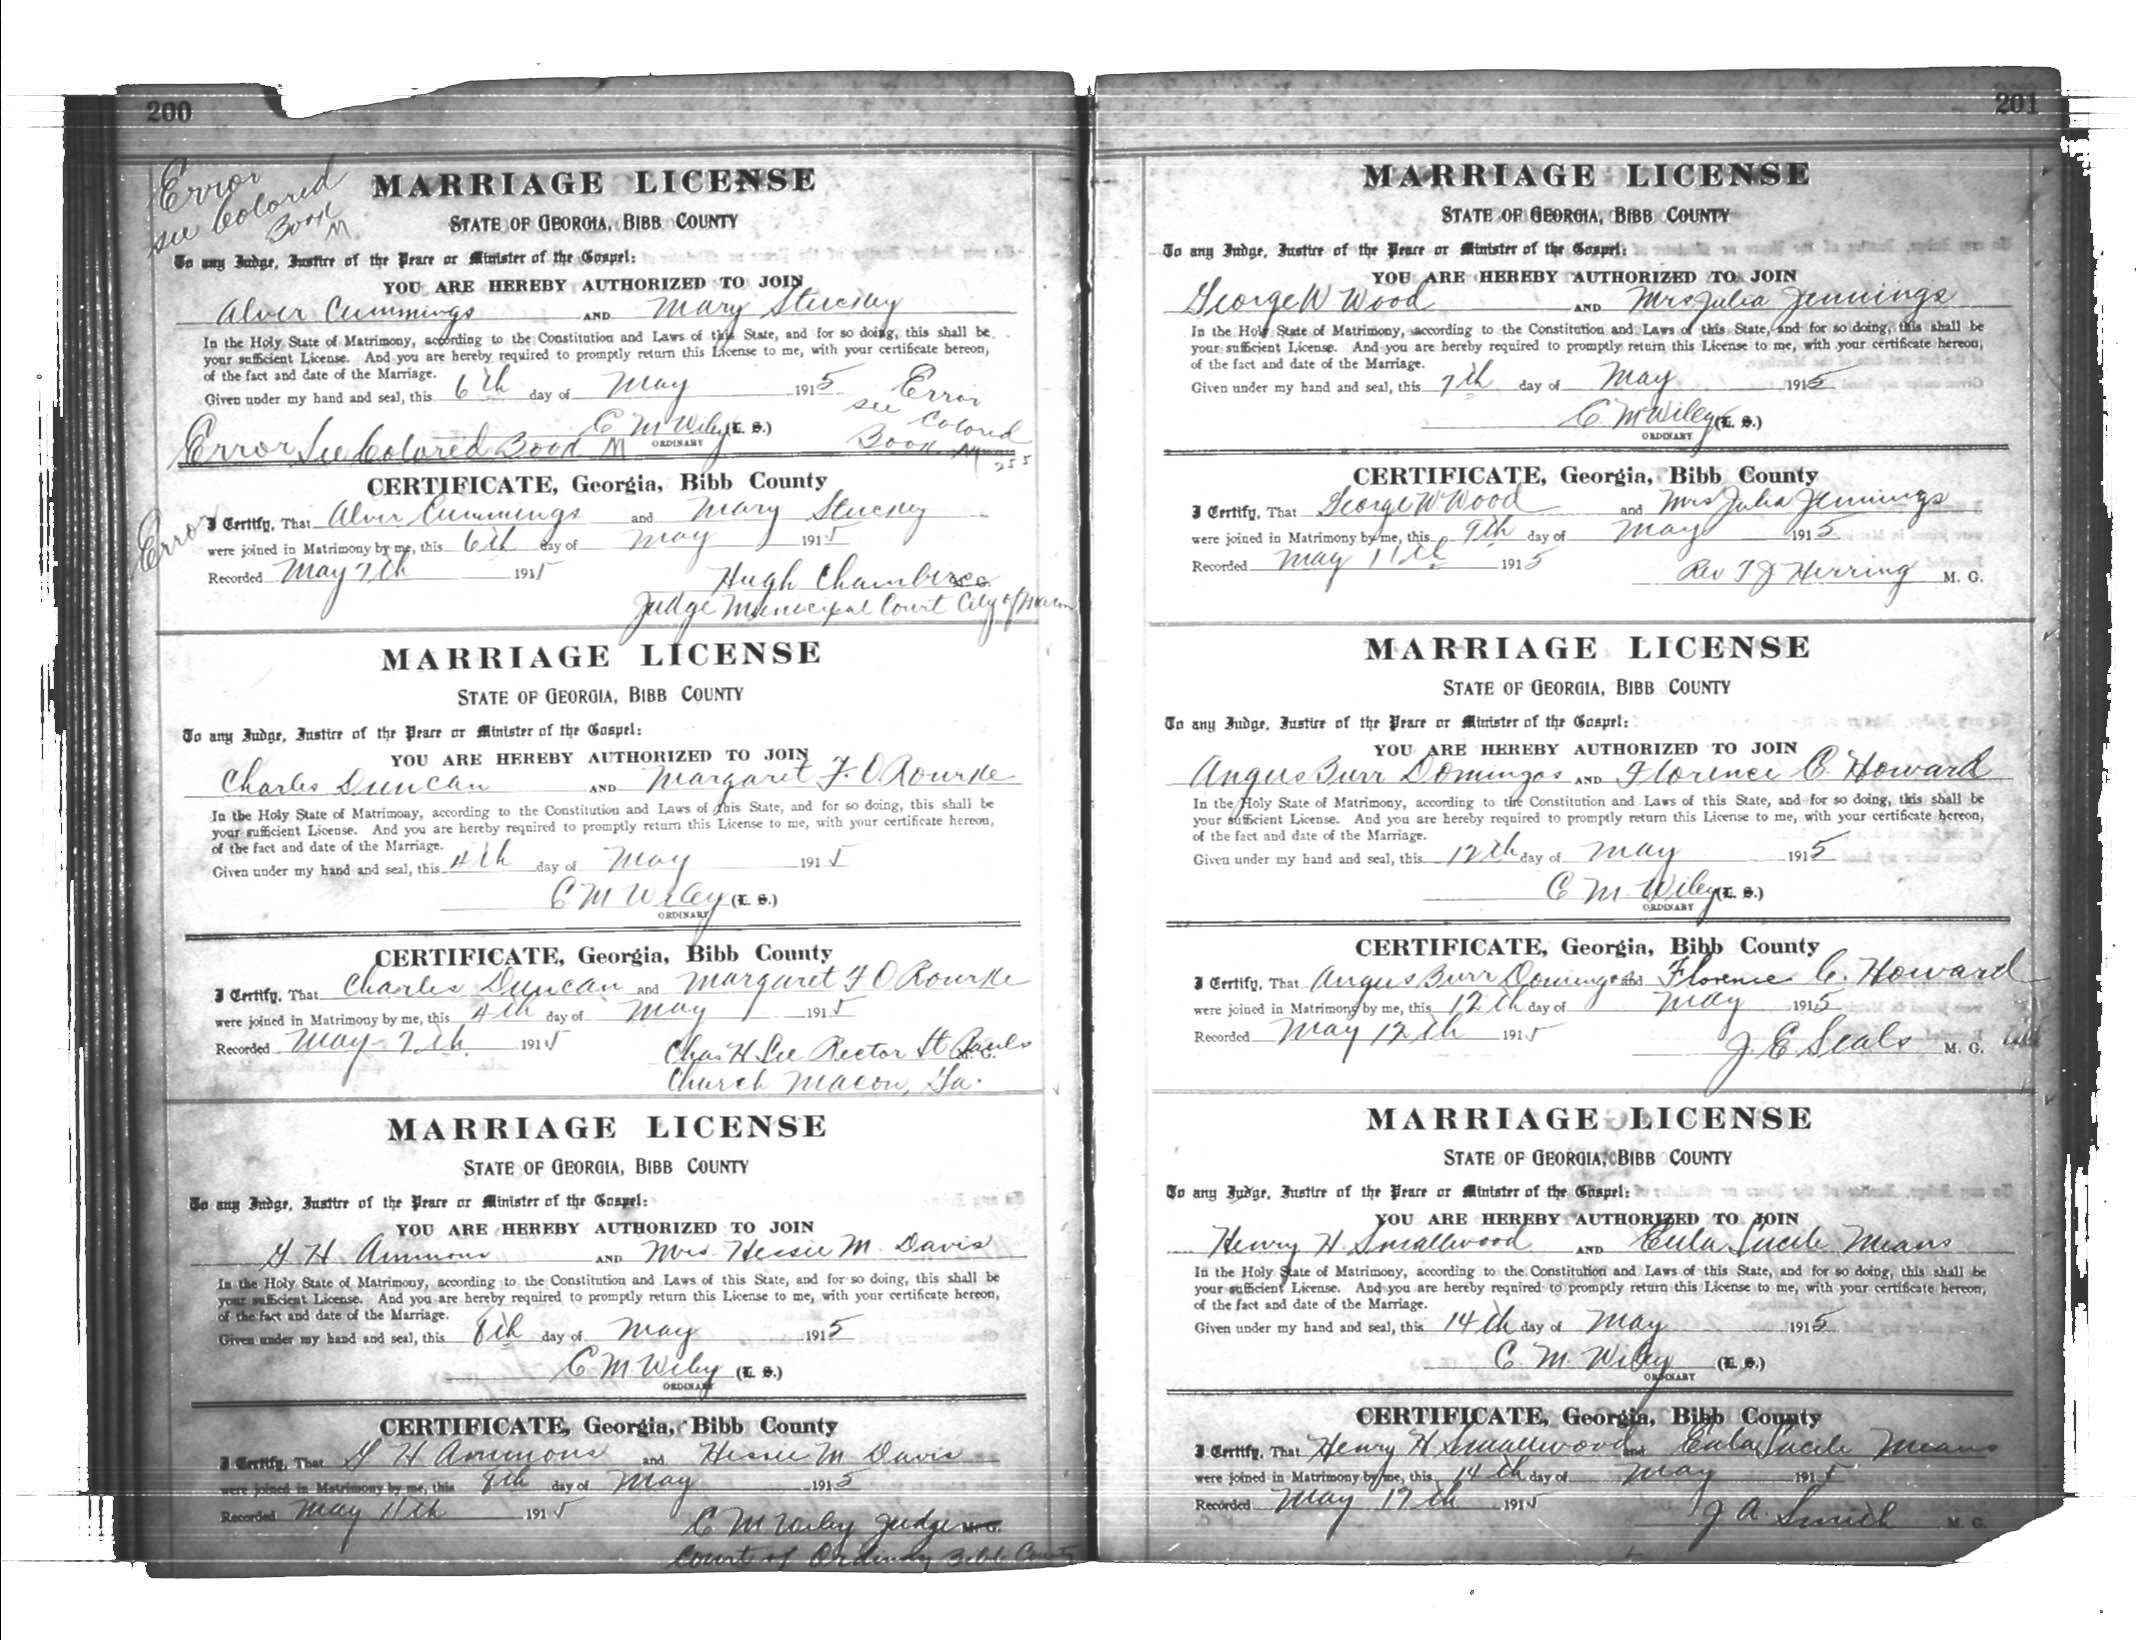 200
Error
see Colored
Book
M
MARRIAGE LICENSE
STATE OF GEORGIA, BIBB COUNTY
To any Judge, Justice of the Peace or Minister of the Gospel:
YOU ARE HEREBY AUTHORIZED TO JOIN
Alver Cummings AND Mary Stucky
In the Holy State of Matrimony, according to the Constitution and Laws of this State, and for so doing, this shall be
your sufficient License. And you are hereby required to promptly return this License to me, with your certificate hereon,
of the fact and date of the Marriage.
Given under my hand and seal, this 6th day of May 1915
Error
see Colored
Book M
255
C M Wiley (L. S.)
ORDINARY
Error See Colored Book M
CERTIFICATE, Georgia, Bibb County
Error
I Certify, That Alver Cummings and Mary Stucky
were joined in Matrimony by me, this 6th day of May 1915
Recorded May 7th 1915
Hugh Chambers
Judge Municipal Court City of Macon
MARRIAGE LICENSE
STATE OF GEORGIA, BIBB COUNTY
To any Judge, Justice of the Peace or Minister of the Gospel:
YOU ARE HEREBY AUTHORIZED TO JOIN
Charles Duncan AND Margaret F. O Rourke
In the Holy State of Matrimony, according to the Constitution and Laws of this State, and for so doing, this shall be
your sufficient License. And you are hereby required to promptly return this License to me, with your certificate hereon,
of the fact and date of the Marriage.
Given under my hand and seal, this 4th day of May 1915
C M Wiley (L. S.)
ORDINARY
CERTIFICATE, Georgia, Bibb County
I Certify, That Charles Duncan and Margaret F O Rourke
were joined in Matrimony by me, this 4th day of May 1915
Recorded May 7th 1915
Chas H Lee Rector St Pauls
Church Macon, Ga.
MARRIAGE LICENSE
STATE OF GEORGIA, BIBB COUNTY
To any Judge, Justice of the Peace or Minister of the Gospel:
YOU ARE HEREBY AUTHORIZED TO JOIN
G H Ammons AND Mrs. Hessie M. Davis
In the Holy State of Matrimony, according to the Constitution and Laws of this State, and for so doing, this shall be
your sufficient License. And you are hereby required to promptly return this License to me, with your certificate hereon,
of the fact and date of the Marriage.
Given under my hand and seal, this 8th day of May 1915
C M Wiley (L. S.)
ORDINARY
CERTIFICATE, Georgia, Bibb County
I Certify, That G H Ammons and Hessie M Davis
were joined in Matrimony by me, this 8th day of May 1915
Recorded May 11th 1915
C M Wiley Judge M. G.
Court of Ordinary Bibb County
201
MARRIAGE LICENSE
STATE OF GEORGIA, BIBB COUNTY
To any Judge, Justice of the Peace or Minister of the Gospel:
YOU ARE HEREBY AUTHORIZED TO JOIN
George W Wood AND Mrs Julia Jennings
In the Holy State of Matrimony, according to the Constitution and Laws of this State, and for so doing, this shall be
your sufficient License. And you are hereby required to promptly return this License to me, with your certificate hereon,
of the fact and date of the Marriage.
Given under my hand and seal, this 7th day of May 1915
C M Wiley (L. S.)
ORDINARY
CERTIFICATE, Georgia, Bibb County
I Certify, That George W Wood and Mrs Julia Jennings
were joined in Matrimony by me, this 9th day of May 1915
Recorded May 11th 1915
Rev T J Herring M. G.
MARRIAGE LICENSE
STATE OF GEORGIA, BIBB COUNTY
To any Judge, Justice of the Peace or Minister of the Gospel:
YOU ARE HEREBY AUTHORIZED TO JOIN
Angus Burr Domingos AND Florence C. Howard
In the Holy State of Matrimony, according to the Constitution and Laws of this State, and for so doing, this shall be
your sufficient License. And you are hereby required to promptly return this License to me, with your certificate hereon,
of the fact and date of the Marriage.
Given under my hand and seal, this 12th day of May 1915
C M Wiley (L. S.)
ORDINARY
CERTIFICATE, Georgia, Bibb County
I Certify, That Angus Burr Domingos and Florence C. Howard
were joined in Matrimony by me, this 12th day of May 1915
Recorded May 12th 1915
J. E Seals M. G.
MARRIAGE LICENSE
STATE OF GEORGIA, BIBB COUNTY
To any Judge, Justice of the Peace or Minister of the Gospel:
YOU ARE HEREBY AUTHORIZED TO JOIN
Henry H Smallwood AND Eula Lucile Means
In the Holy State of Matrimony, according to the Constitution and Laws of this State, and for so doing, this shall be
your sufficient License. And you are hereby required to promptly return this License to me, with your certificate hereon,
of the fact and date of the Marriage.
Given under my hand and seal, this 14th day of May 1915
C. M. Wiley (L. S.)
ORDINARY
CERTIFICATE, Georgia, Bibb County
I Certify, That Henry H Smallwood and Eula Lucile Means
were joined in Matrimony by me, this 14th day of May 1915
Recorded May 17th 1915
J A. Smith M. G.